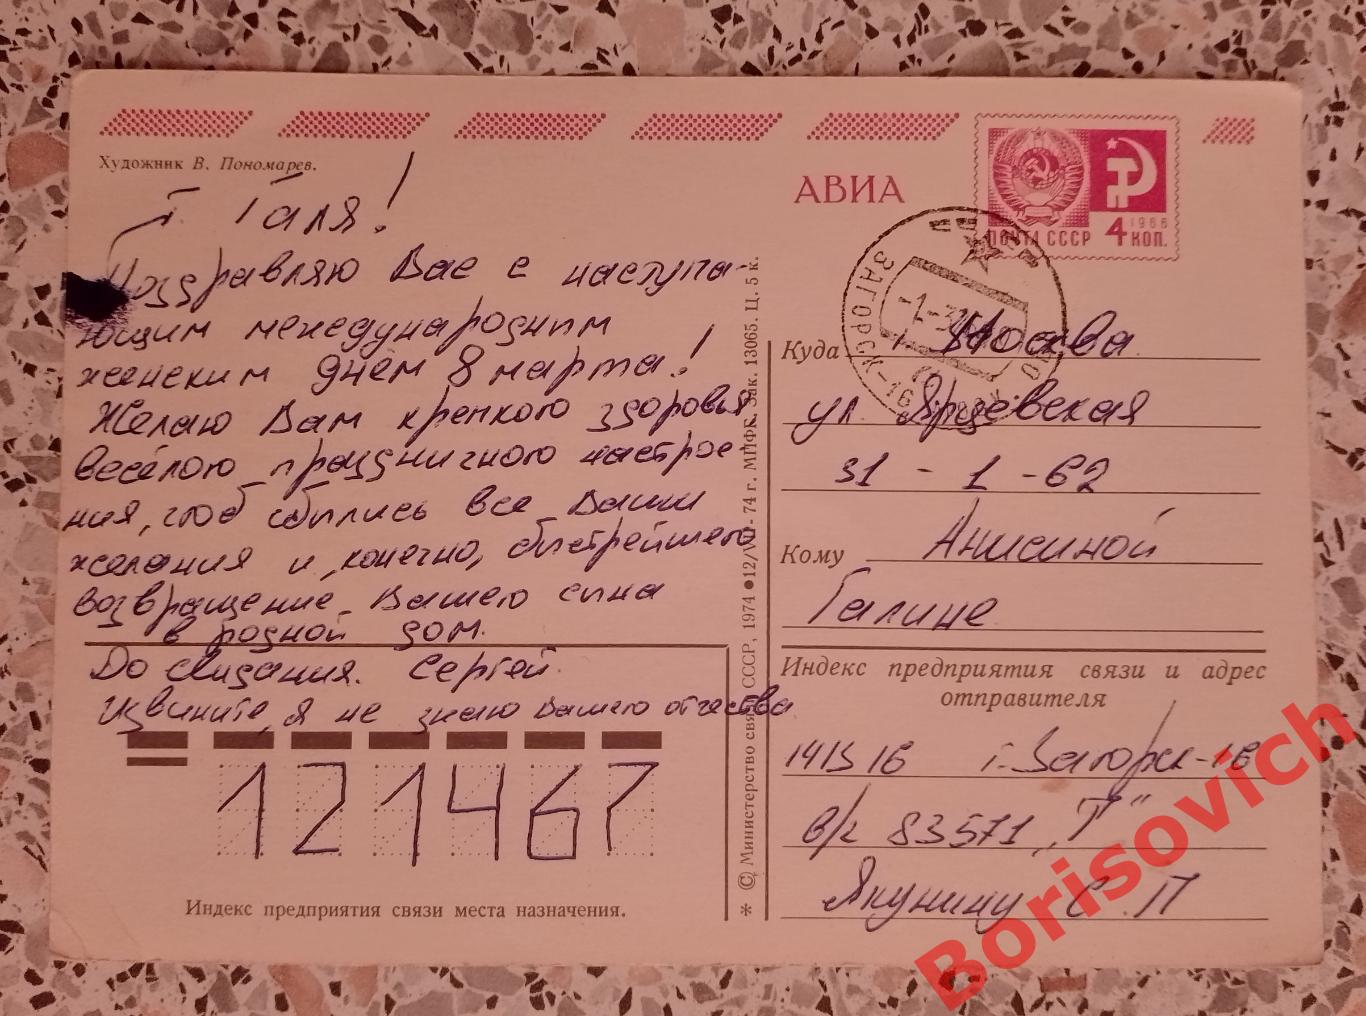 Художник В. Пономарев.
т. Галя!
Поздравляю Вас с наступа-
ющим международним
женским днём 8 марта!
Желаю Вам крепкого здоровья
весёлого праздничного настрое-
ния, чтоб сбылись все Ваши
желания и, конечно, быстрейшего
возвращение Вашего сына
в родной дом.
До свидания. Сергей.
Извините, я не знаю Вашего отчества
121467
Индекс предприятия связи места назначения.
* © Министерство связи СССР, 1974 • 12/ - 74 г. МПФК. Зак. 13065. Ц. 5 к.
АВИА
1966
ПОЧТА СССР 4 КОП.
ЗАГОРСК-16
Куда Москва
ул Ярцевская
31 - 1 - 62
Кому Анисиной
Галине
Индекс предприятия связи и адрес
отправителя
141316 г. Загорск-16
в/ч 83571 „Т"
Якунину С. П
Borisovich